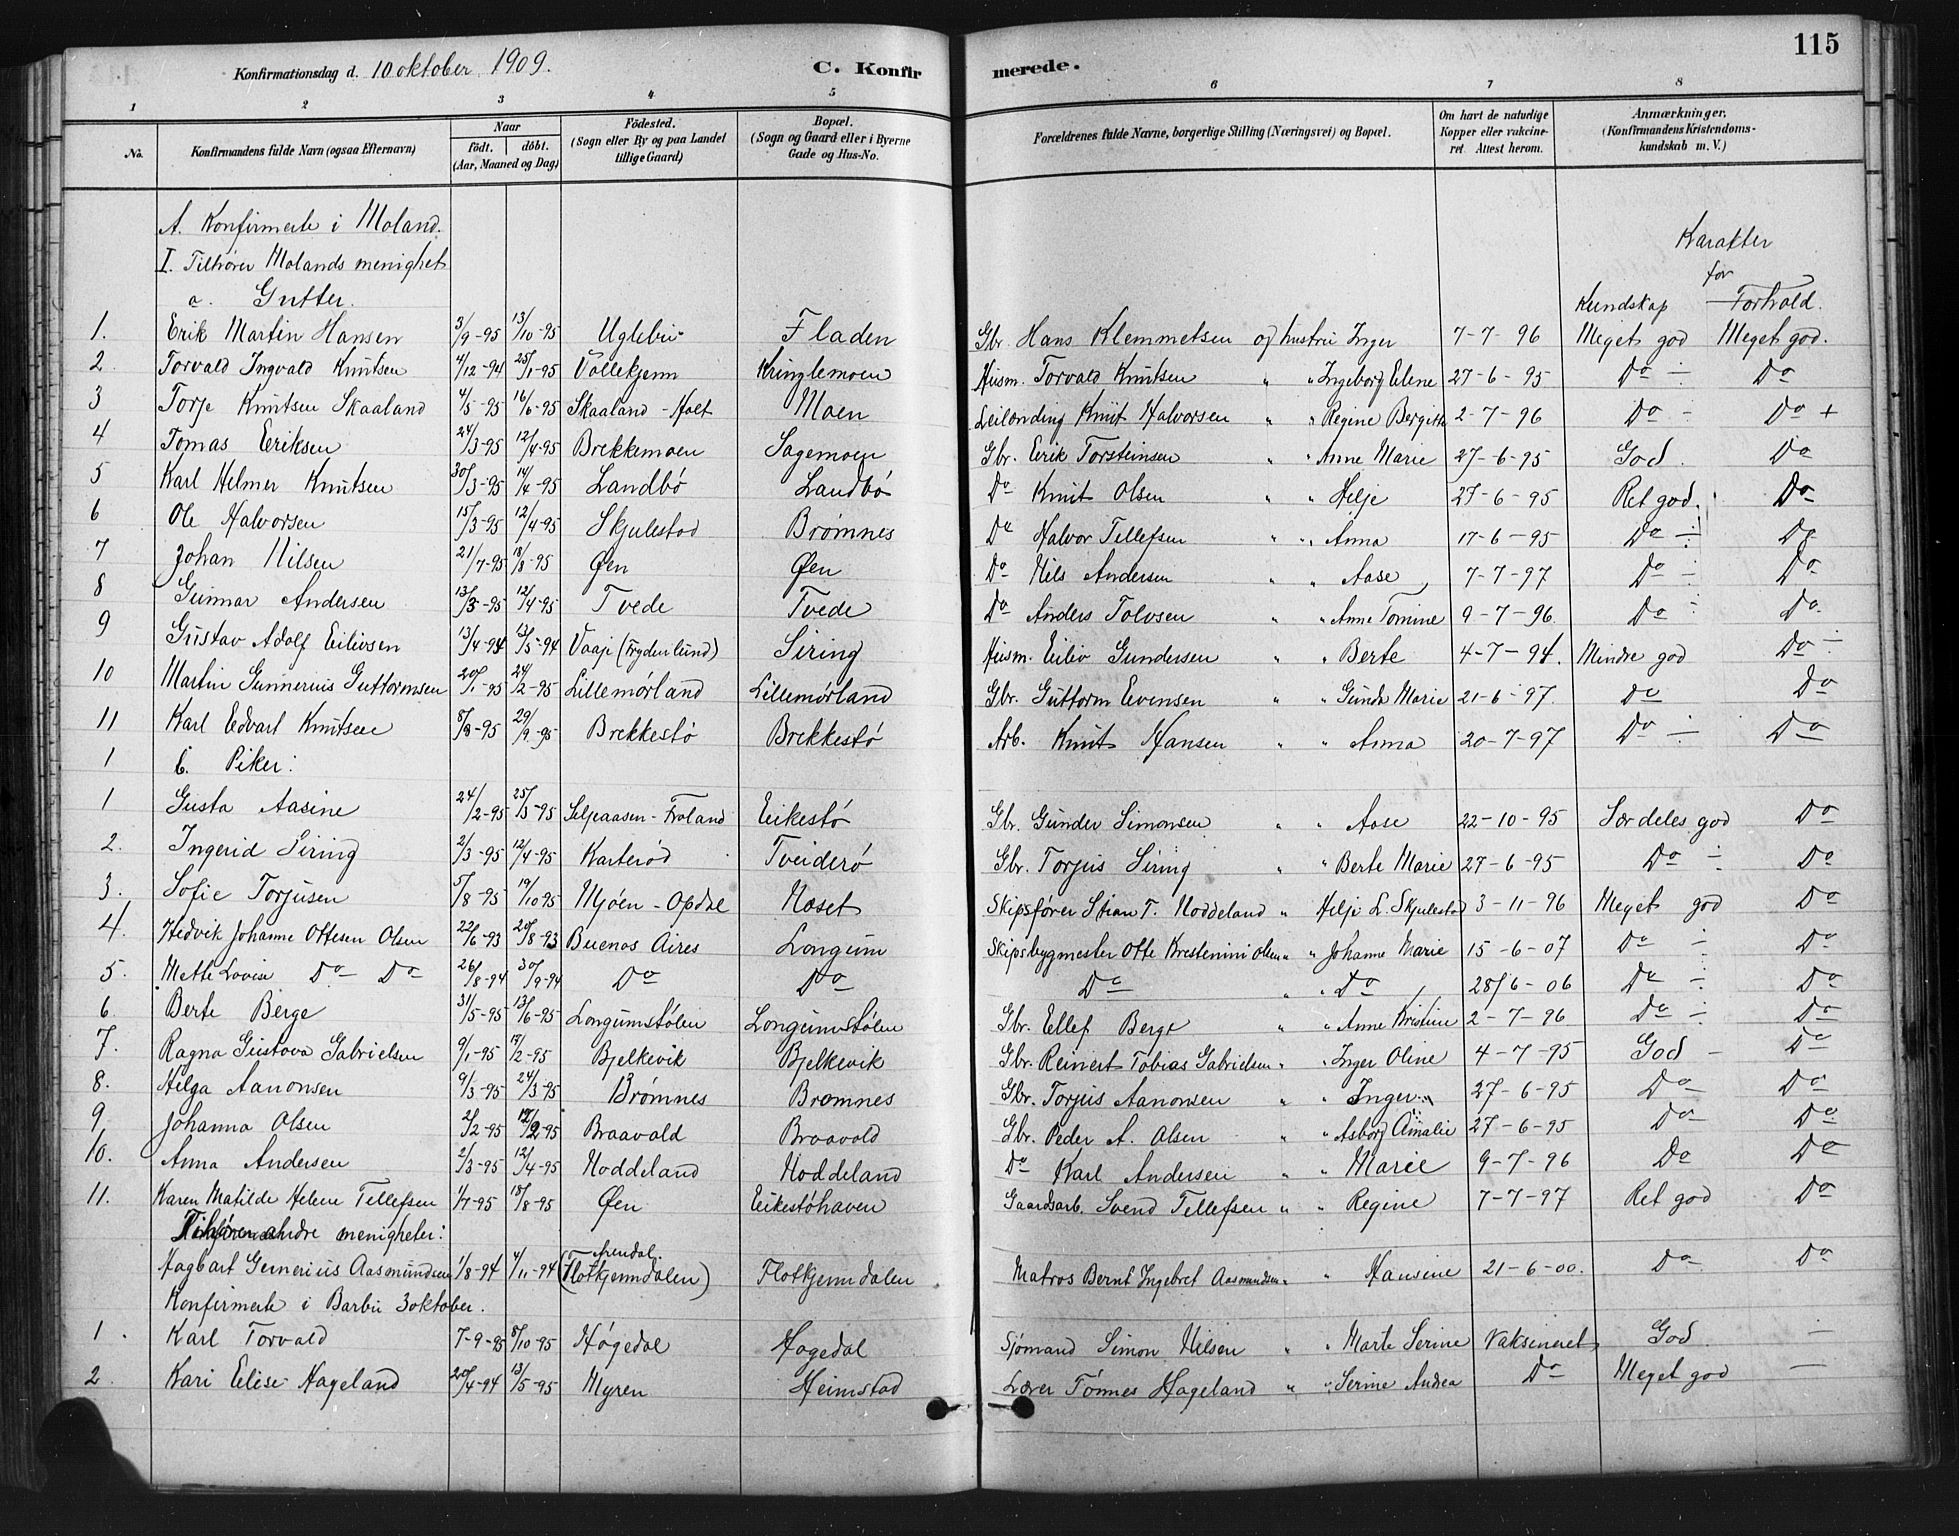 115
Konfirmationsdag d. 10 oktober 1909.
C. Konfirmerede.
1 2 3 4 5 6 7 8
No. Konfirmandens fulde Navn (ogsaa Efternavn) Naar födt. döbt. (Aar, Maaned og Dag) Födested. (Sogn eller By og paa Landet tillige Gaard) Bopæl. (Sogn og Gaard eller i Byerne Gade og Hus-No. Forældrenes fulde Navne, borgerlige Stilling (Næringsvei) og Bopæl. Om havt de naturlige Kopper eller vakcineret. Attest herom. Anmærkninger, (Konfirmandens Kristendomskundskab m. V.)
A. Konfirmerte i Moland.
I. Tilhører Molands menighet
a. Gutter.
Karakter for
Kundskap Forhold.
1. Erik Martin Hansen 3/9-95 13/10-95 Uglebu Fladen Gbr. Hans Klemmetsen og hustru Inger 7-7-96 Meget god Meget god.
2. Torvald Ingvald Knutsen 4/12-94 25/1-95 Vollekjenn Kringlemoen Husm. Torvald Knutsen " " Ingeborg Elene 27-6-95 Do ÷ Do
3 Torje Knutsen Skaaland 4/5-95 16/6-95 Skaaland - Holt Moen Leilending Knut Halvorsen " " Regine Bergitte 2-7-96 Do - Do +
4 Tomas Eriksen 24/3-95 12/4-95 Brekkemoen Sagemoen Gbr. Erik Torsteinsen " " Anne Marie 27-6-95 God. Do
5 Karl Helmer Knutsen 30/3-95 14/4-95 Landbö Landbö Do Knut Olsen " " Helje 27-6-95 Ret god. Do
6 Ole Halvorsen 15/3-95 12/4-95 Skjulestad Brømnes Do Halvor Tellefsen " " Anna 17-6-95 Do ÷ Do
7 Johan Nilsen 21/7-95 18/8-95 Øen Øen Do Nils Andersen " " Aase 7-7-97 Do ÷ Do
8 Gunnar Andersen 13/3-95 12/4-95 Tvede Tvede Do Anders Tolvsen " " Anne Tomine 9-7-96. Do ÷ Do
9 Gustav Adolf Eilivsen 13/4-94 13/5-94 Vaaje (Frydenlund) Siring Husm. Eiliv Gundersen " " Berte 4-7-94. Mindre god Do ÷
10 Martin Gunnerius Guttormsen 20/1-95 24/2-95 Lillemørland Lillemørland Gbr. Guttorm Evensen " " Gunda Marie 21-6-97. Do Do
11 Karl Edvart Knutsen 8/8-95 29/9-95 Brekkestö Brekkestö Arb. Knut Hansen " " Anna 20-7-97 Do ÷ Do
1 b. Piker:
1 Gusta Aasine 24/2-95 25/3-95 Selpaasen - Froland Eikestö Gbr. Gunder Simonsen " " Aase 22-10-95 Særdeles god Do
2. Ingerid Siring 2/3-95 12/4-95 Karterød Tveiderö Gbr. Torjus Siring " " Berte Marie 27-6-95 Do ÷ Do
3. Sofie Torjusen 5/8-95 19/10 95 Mjóen - Opdal Naset Skipsfører Stian T. Noddeland " Helje L. Skjulestad 3-11-96 Meget god Do
4. Hedvik Johanne Ottesen Olsen 22/6-93 20/8-93 Buenos Aires Longum Skipsbygmester Otte Krestenini Olsen " " Johanne Marie 15-6-07 Do ÷ Do
5. Mette Lovise Do Do 26/8-94 30/9-94 Do Do Do " " Do 28/6-06 Do ÷ Do
6. Berte Berge 31/5-95 13/6-95 Longumstölen Longumstölen Gbr. Ellef Berge " " Anne Kristine 2-7-96 Do ÷ Do
7. Ragna Gustava Gabrielsen 9/1-95 17/2-95 Bjelkevik Bjelkevik Gbr. Reinert Tobias Gabrielsen " " Inger Oline 4-7-95 God - Do
8. Helga Aanonsen 9/3-95 24/3-95 Brømnes Brømnes Gbr. Torjus Aanonsen " " Inger 27-6-95 Do Do
9 Johanna Olsen 2/2-95 17/2-95 Braavold Braavold Gbr. Peder A. Olsen " " Asborg Amalie 27-6-95 Do Do
10. Anna Andersen 2/3-95 12/4-95 Noddeland Noddeland Do Karl Andersen " Marie 9-7-96 Do Do
11. Karen Matilde Helene Tellefsen 1/7-95 18/8-95 Øen Eikestöhaven Gaardsarb. Svend Tellefsen " " Regine 7-7-97 Ret god Do
Tilhører andre menigheter:
Hagbart Gunerius Aasmundsen 1/8-94 4/11-94 Arendal. (Flotkjenndalen) Flotkjenndalen Matros Bernt Ingebret Aasmundsen " " Hansine 21-6-00. Do Do
Konfirmerte i Barbu 3 oktober.
1. Karl Torvald 7-9-95 8/10-95 Høgedal Høgedal Sjømand Simon Nilsen " " Marte Serine Vaksineret God. —
2. Kari Elise Hageland 20/4-94 13/5-95 Myren Heimstad Lærer Tönnes Hageland " " Serine Andrea Do Meget god —